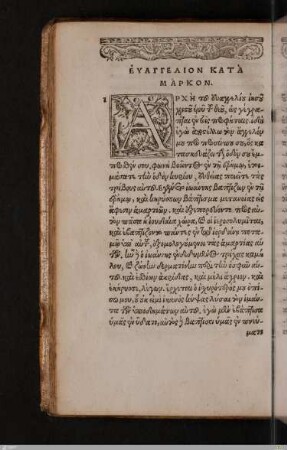 ΕΥΑΓΓΕΛΙΟΝ ΚΑΤΑ
ΜΑΡΚΟΝ.
1
ΑΡΧΗ τοῦ εὐαγγελίου ἰησοῦ
χριστοῦ υἱοῦ τοῦ θεοῦ, ὡς γέγρα-
πται ἐν τοῖς προφήταις, ἰδοὺ
ἐγὼ ἀποστέλλω τὸν ἄγγελόν
μου πρὸ προσώπου σου, ὃς κα-
τασκευάσει τὴν ὁδόν σου ἔμ-
προσθέν σου, φωνὴ βοῶντος ἐν τῇ ἐρήμῳ, ἑτοι-
μάσατε τὴν ὁδὸν κυρίου, εὐθείας ποιεῖτε τὰς
τρίβους αὐτοῦ. ἐγένετο ἰωάννης βαπτίζων ἐν τῇ
ἐρήμῳ, καὶ κηρύσσων βάπτισμα μετανοίας εἰς
ἄφεσιν ἁμαρτιῶν, καὶ ἐξεπορεύετο πρὸς αὐ-
τὸν πᾶσα ἡ ἰουδαία χώρα, καὶ οἱ ἱεροσολυμῖται,
καὶ ἐβαπτίζοντο πάντες ἐν τῷ ἰορδάνῃ ποτα-
μῷ ὑπ' αὐτοῦ, ἐξομολογούμενοι τὰς ἁμαρτίας αὐ-
τῶν, ἦν δὲ ὁ ἰωάννης ἐνδεδυμένος τρίχας καμή-
λου, καὶ ζώνην δερματίνην περὶ τὴν ὀσφὺν αὐ-
τοῦ, καὶ ἐσθίων ἀκρίδας, καὶ μέλι ἄγριον, καὶ
ἐκήρυσσε, λέγων. ἔρχεται ὁ ἰσχυρότερός μου ὀπί-
σω μου, οὗ οὐκ εἰμὶ ἱκανὸς κύψας λῦσαι τὸν ἱμάν-
τα τῶν ὑποδημάτων αὐτοῦ, ἐγὼ μὲν ἐβάπτισα
ὑμᾶς ἐν ὕδατι, αὐτὸς δὲ βαπτίσει ὑμᾶς ἐν πνεύ-
ματι